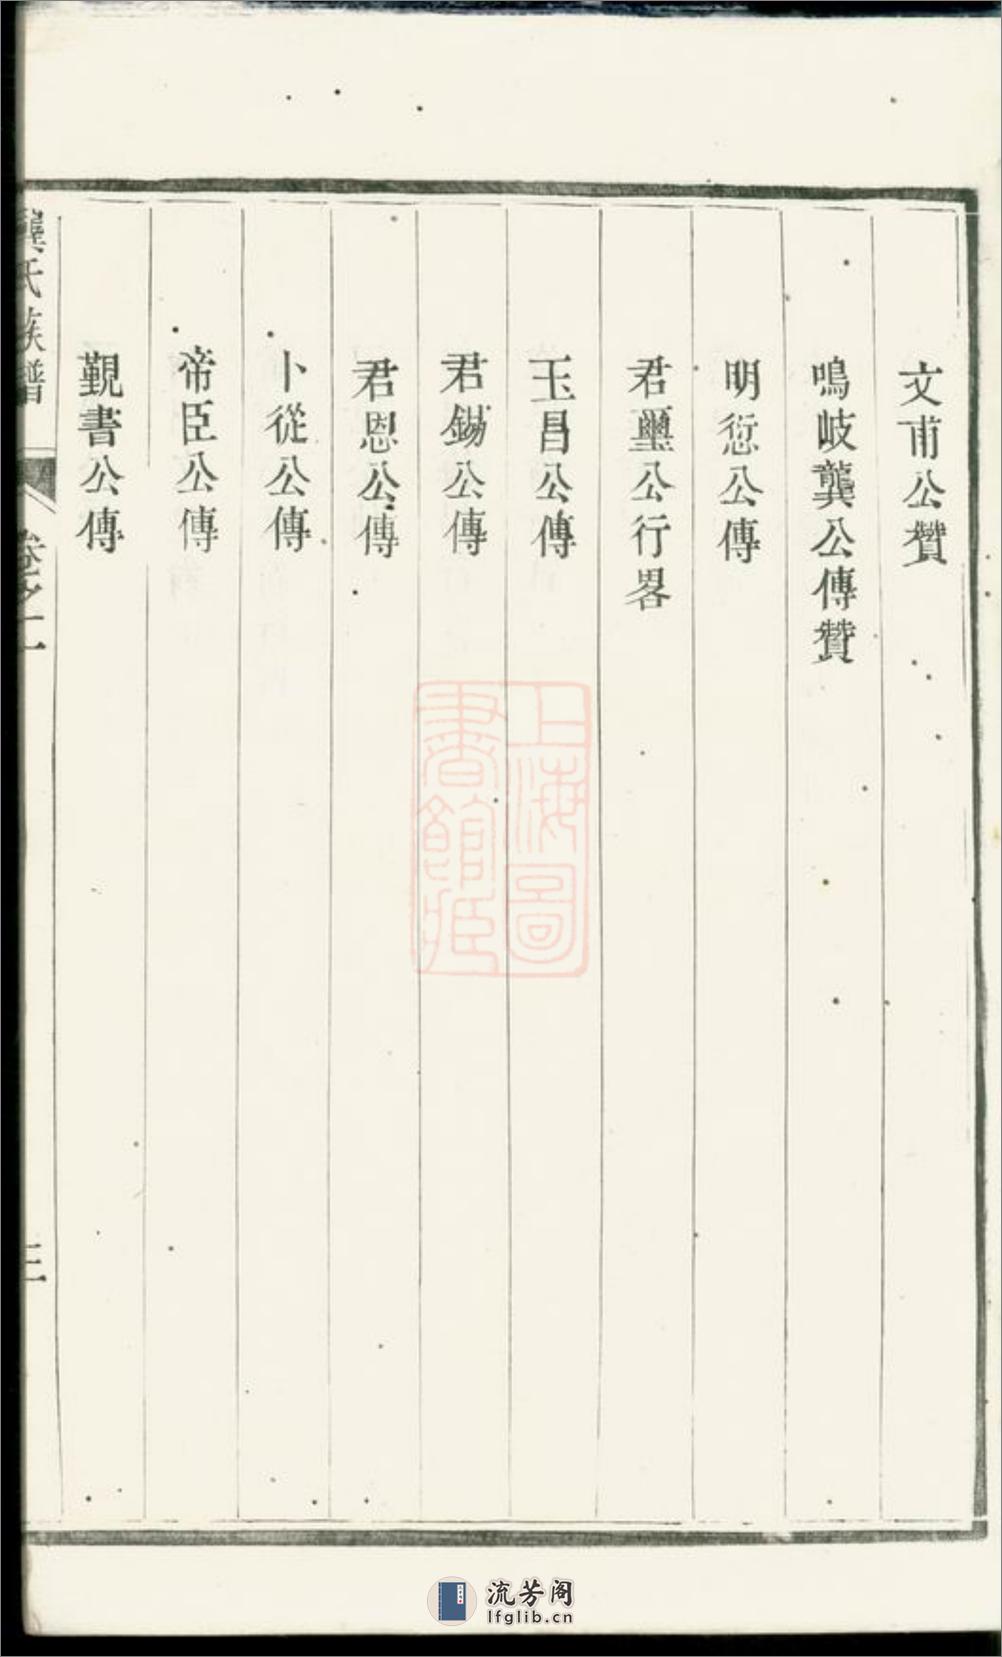 文甫公贊
鳴岐龔公傳贊
明愆公傳
君璽公行畧
玉昌公傳
君錫公傳
君恩公傳
卜從公傳
帝臣公傳
觐書公傳
龔氏族譜
卷之一
三
上海圖
書館藏
流芳阁
lfglib.cn